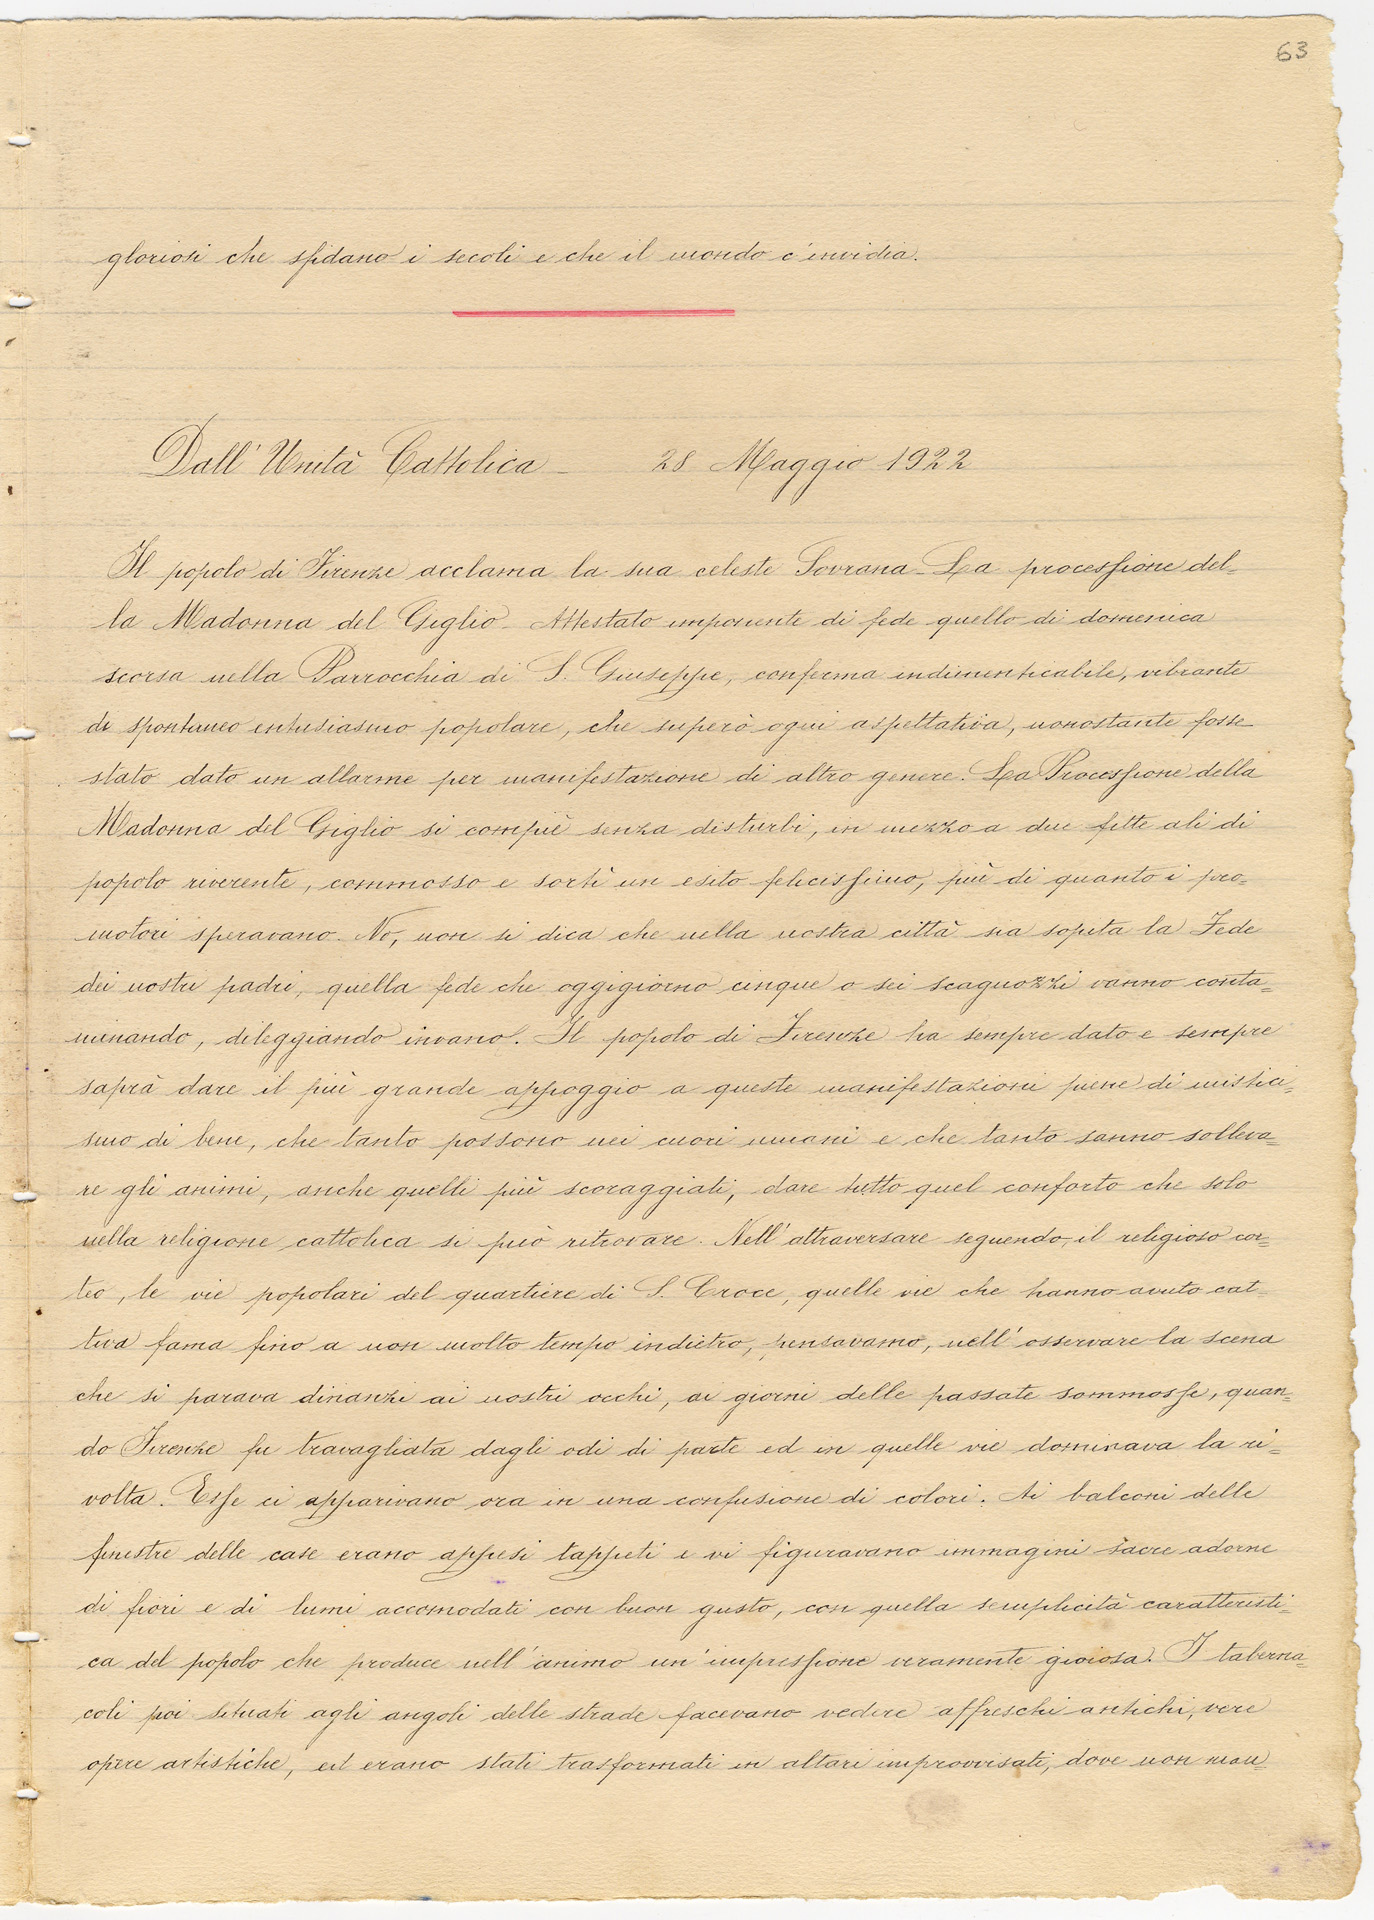 63
gloriosi che sfidano i secoli e che il mondo c'invidia.
Dall'Unità Cattolica - 28 Maggio 1922
Il popolo di Firenze acclama la sua celeste Sovrana - La processione del=
la Madonna del Giglio - Attestato imponente di fede quello di domenica
scorsa nella Parrocchia di S. Giuseppe, conferma indimenticabile, vibrante
di spontaneo entusiasmo popolare, che superò ogni aspettativa, nonostante fosse
stato dato un allarme per manifestazione di altro genere. La Processione della
Madonna del Giglio si compiè senza disturbi, in mezzo a due fitte ali di
popolo riverente, commosso e sortì un esito felicissimo, più di quanto i pro=
motori speravano. No, non si dica che nella nostra città sia sopita la Fede
dei nostri padri, quella fede che oggigiorno cinque o sei scagnozzi vanno conta=
minando, dileggiando invano! Il popolo di Firenze ha sempre dato e sempre
saprà dare il più grande appoggio a queste manifestazioni piene di mistici=
smo di bene, che tanto possono nei cuori umani e che tanto sanno solleva=
re gli animi, anche quelli più scoraggiati, dare tutto quel conforto che solo
nella religione cattolica si può ritrovare. Nell'attraversare seguendo, il religioso cor=
teo, le vie popolari del quartiere di S. Croce, quelle vie che hanno avuto cat=
tiva fama fino a non molto tempo indietro, pensavamo, nell'osservare la scena
che si parava dinanzi ai nostri occhi, ai giorni delle passate sommosse, quan=
do Firenze fu travagliata dagli odi di parte ed in quelle vie dominava la ri=
volta. Esse ci apparivano ora in una confusione di colori. Ai balconi delle
finestre delle case erano appesi tappeti e vi figuravano immagini sacre adorne
di fiori e di lumi accomodati con buon gusto, con quella semplicità caratteristi=
ca del popolo che produce nell'animo un'impressione veramente gioiosa. I taberna=
coli poi situati agli angoli delle strade facevano vedere affreschi antichi, vere
opere artistiche, ed erano stati trasformati in altari improvvisati, dove non man=